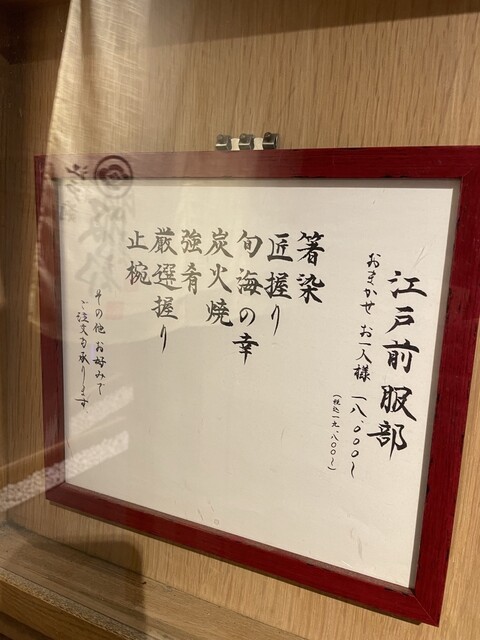 江戸前 服部
おまかせ お一人様 一八、〇〇〇〜
(税込一九、八〇〇〜)
箸染
匠握り
旬海の幸
炭火焼
強肴
厳選握り
止椀
その他 お好みで
ご注文も承ります。